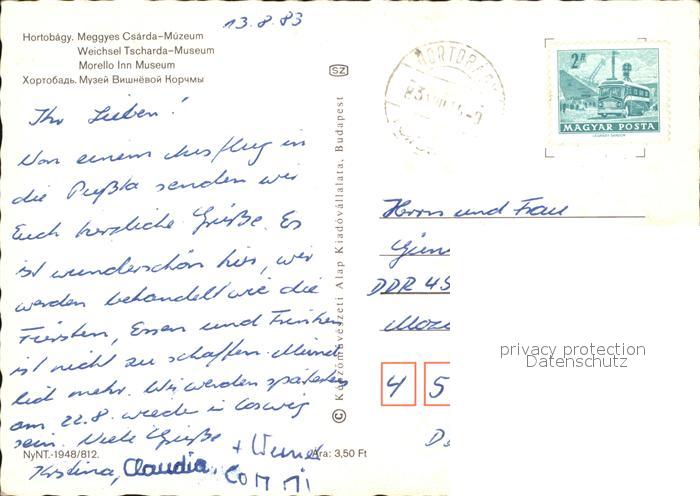 13.8.83
Hortobágy. Meggyes Csárda–Múzeum
Weichsel Tscharda–Museum
Morello Inn Museum
Хортобадь. Музей Вишнёвой Корчмы
Ihr Lieben!
Von einem Ausflug in
die Pußta senden wir
Euch herzliche Grüße. Es
ist wunderschön hier, wir
werden behandelt wie die
Fürsten, Essen und Trinken
ist nicht zu schaffen.
lich mehr. Wir werden spätestens
am 22.8. wieder in Coswig
sein. Viele Grüße
Kristina, Claudia,
+ Werner
Commi
NyNT.–1948/812.
Ára: 3,50 Ft
SZ
© Képzőművészeti Alap Kiadóvállalata, Budapest
HORTOBÁGY
83
2 Ft
MAGYAR POSTA
LÉGRÁDY SÁNDOR
Herrn und Frau
Gün
DDR 45
4 5
privacy protection
Datenschutz